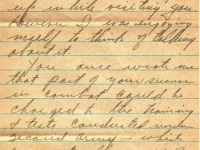 up while visiting you
however I was enjoying
myself to think of talking
about it.
You once wrote me
that part of your success
in combat could be
charged to the training
& tests conducted under
Second Army – which